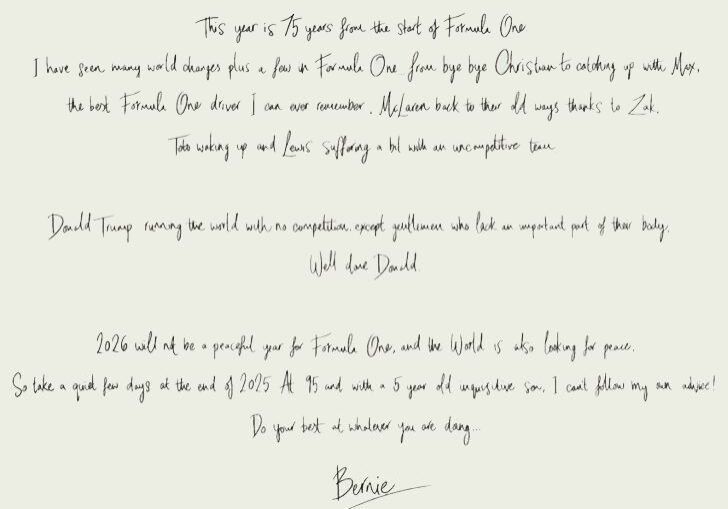 This year is 75 years from the start of Formula One
I have seen many world changes plus a few in Formula One from bye bye Christian to catching up with Max,
the best Formula One driver I can ever remember. McLaren back to their old ways thanks to Zak.
Toto waking up and Lewis suffering a bit with an uncompetitive team
Donald Trump running the world with no competition, except gentlemen who lack an important part of their body.
Well done Donald.
2026 will not be a peaceful year for Formula One, and the World is also looking for peace.
So take a quiet few days at the end of 2025 At 95 and with a 5 year old inquisitive son, I can't follow my own advice!
Do your best at whatever you are doing...
Bernie